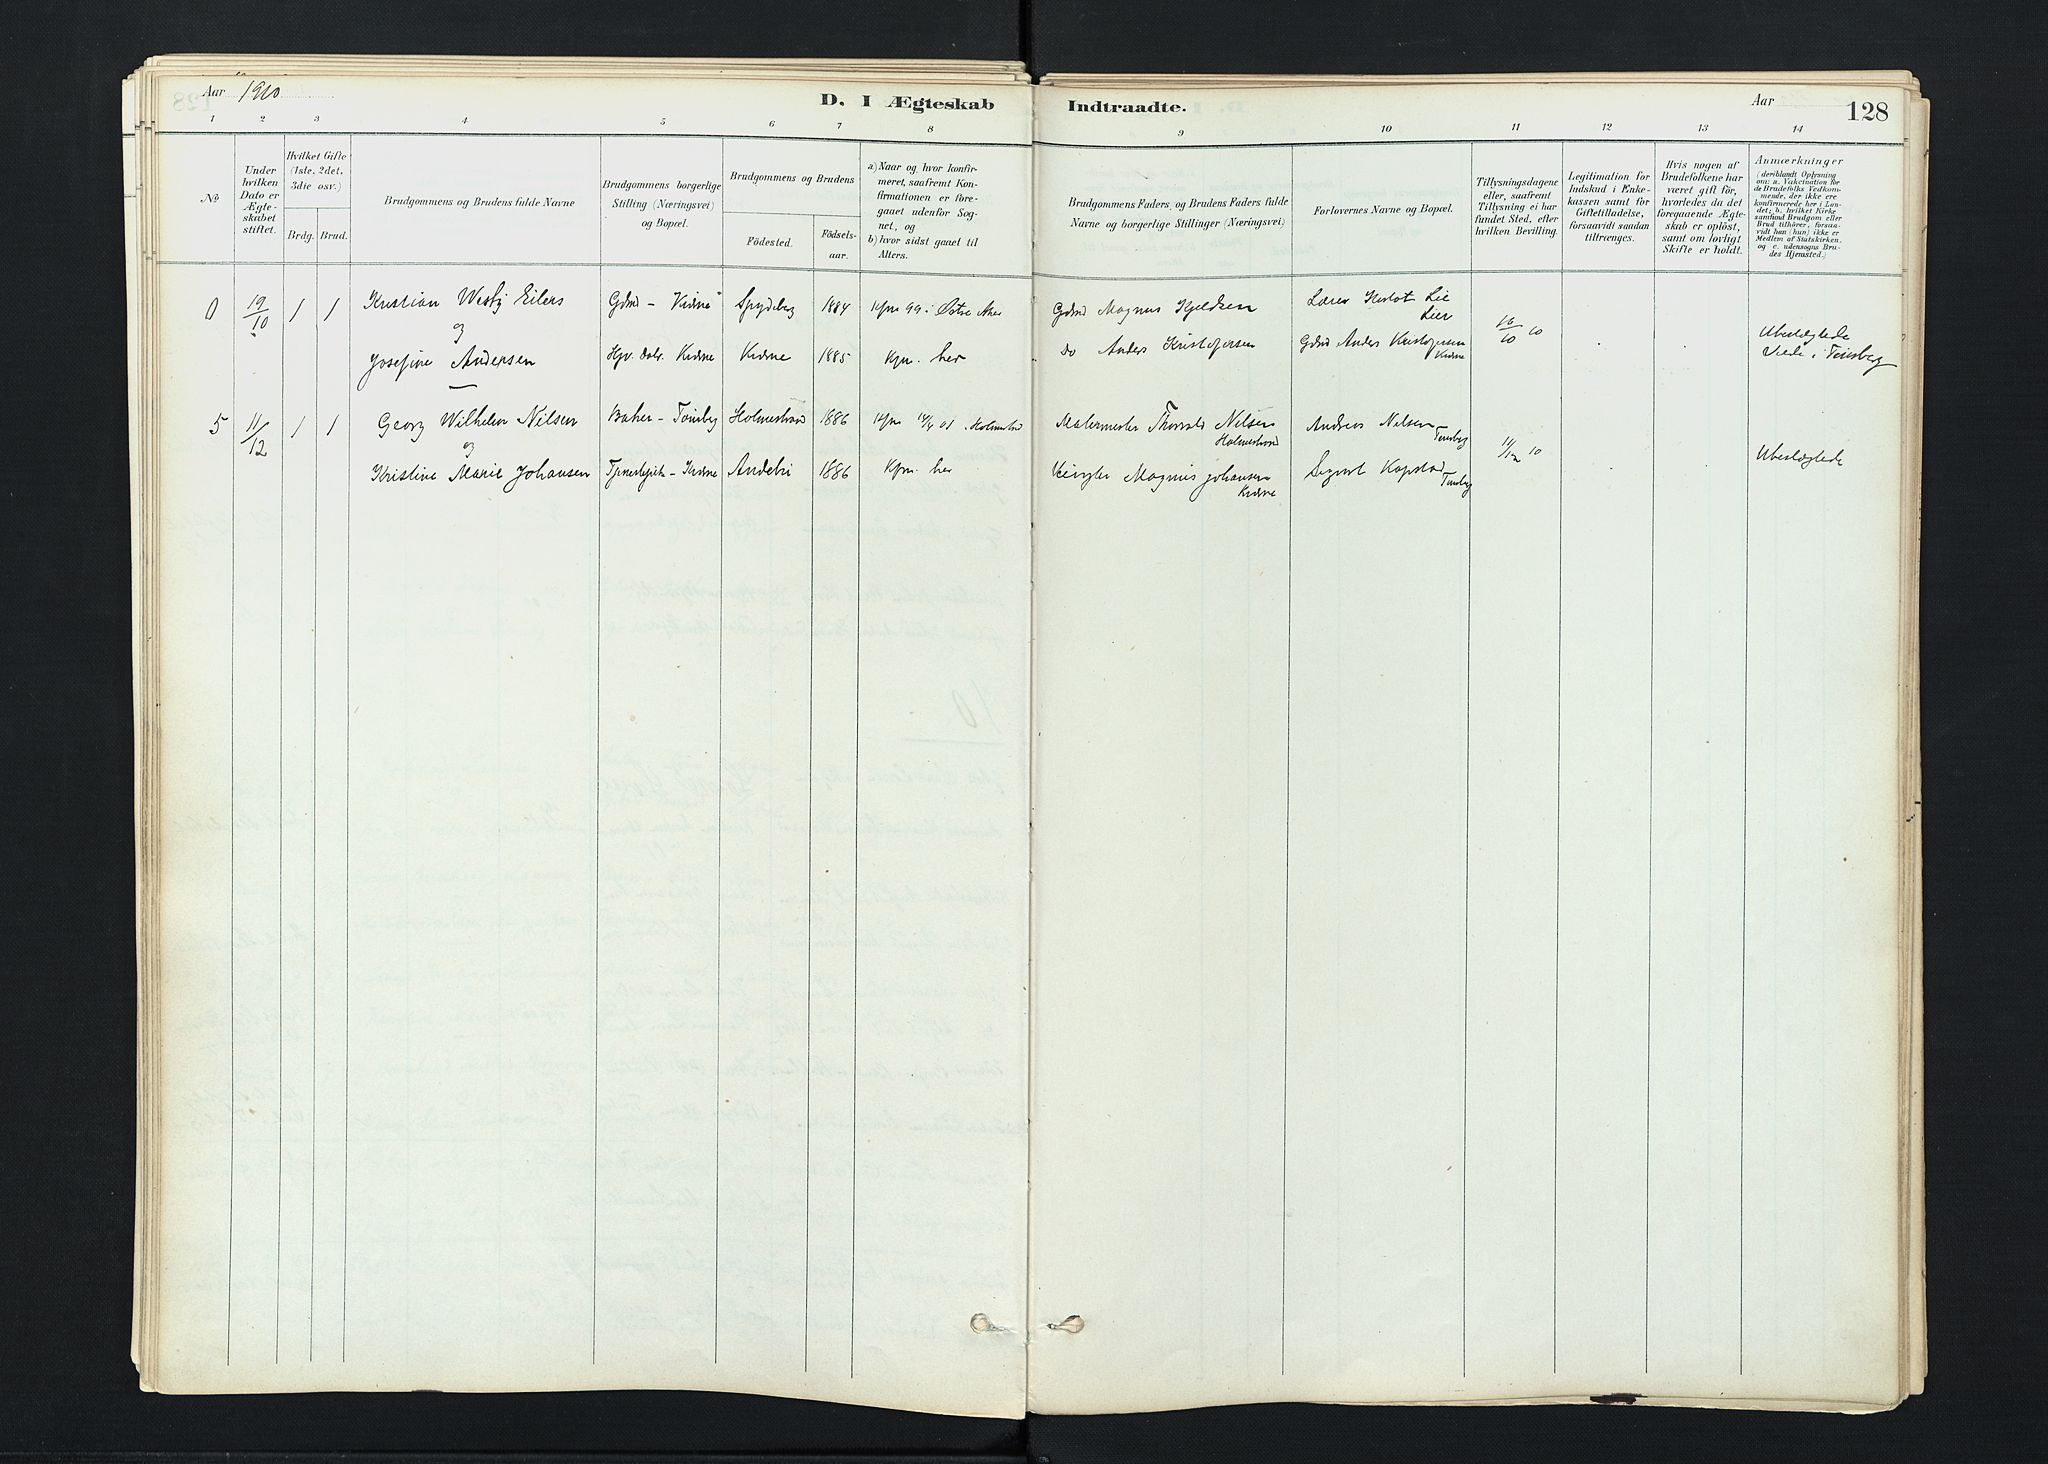 Aar 1910
D. I Ægteskab Indtraadte.
Aar 128
1 2 3 4 5 6 7 8 9 10 11 12 13 14
No
Under hvilken Dato er Ægte-skabet stiftet.
Hvilket Gifte (1ste, 2det, 3die osv.)
Brdg. Brud.
Brudgommens og Brudens fulde Navne
Brudgommens borgerlige Stilling (Næringsvei) og Bopæl.
Brudgommens og Brudens
Födested.
Födsels-aar.
a) Naar og hvor konfir-meret, saafremt Kon-firmationen er fore-gaaet udenfor Sog-net, og
b) hvor sidst gaaet til Alters.
Brudgommens Faders, og Brudens Faders fulde Navne og borgerlige Stillinger (Næringsvei)
Forlovernes Navne og Bopæl.
Tillysningsdagene eller, saafremt Tillysning ei har fundet Sted, efter hvilken Bevilling.
Legitimation for Indskud i Enke-kassen samt for Giftetilladelse, forsaavidt saadan tiltrænges.
Hvis nogen af Brudefolkene har været gift för, hvorledes da det foregaaende Ægte-skab er oplöst, samt om lovligt Skifte er holdt.
Anmærkninger
(deriblandt Oplysning om: a. Vakcination for de Brudefolks Vedkom-mende, der ikke ere konfirmerede her i Lan-det; b. hvilket Kirke-samfund Brudgom eller Brud tilhörer, forsaa-vidt han (hun) ikke er Medlem af Statskirken, og c. udensogns Bru-des Hjemsted.)
0 19/10 1 1 Kristian Wesby Eilers Spydeberg 1884 99 i Østre Aker Gdmd Magnus Kjeldsen Lærer Lie
Lier
og 16/10 10
Josefine Andersen Kirkne 1885 Kpn. her do Anders Kristofersen Gdmd Anders Kristofersen Ubeslægtede
Viede i Tønsberg
5 11/12 1 1 Georg Wilhelm Nilsen Baker - Tønsberg Holmestrand 1886 01. Holmestrd Malermester Thorvald Nilsen Andreas Nilsen
Holmestrand Tønsberg
og 11/12 10
Kristine Marie Johansen Andebu 1886 Kpn. her Magnus Johansen Sigvart Kopstad Ubeslægtede
Tønsberg